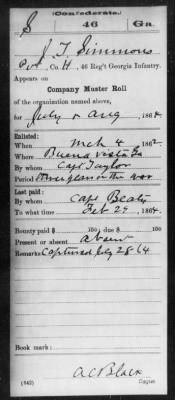 (Confederate.)
S 46 Ga.
J T Simmons
Pvt, Co. H, 46 Reg't Georgia Infantry.
Appears on
Company Muster Roll
of the organization named above,
for July & Aug, 1864.
Enlisted:
When Mch 4, 1862.
Where Buena vista Ga
By whom Capt Taylor
Period 3 years or the war
Last paid:
By whom Capt Beaty
To what time Feb 29, 1864.
Bounty paid $ 100; due $ 100
Present or absent absent
Remarks: Captured July 28 64
Book mark:
A C Black
(642) Copyist.